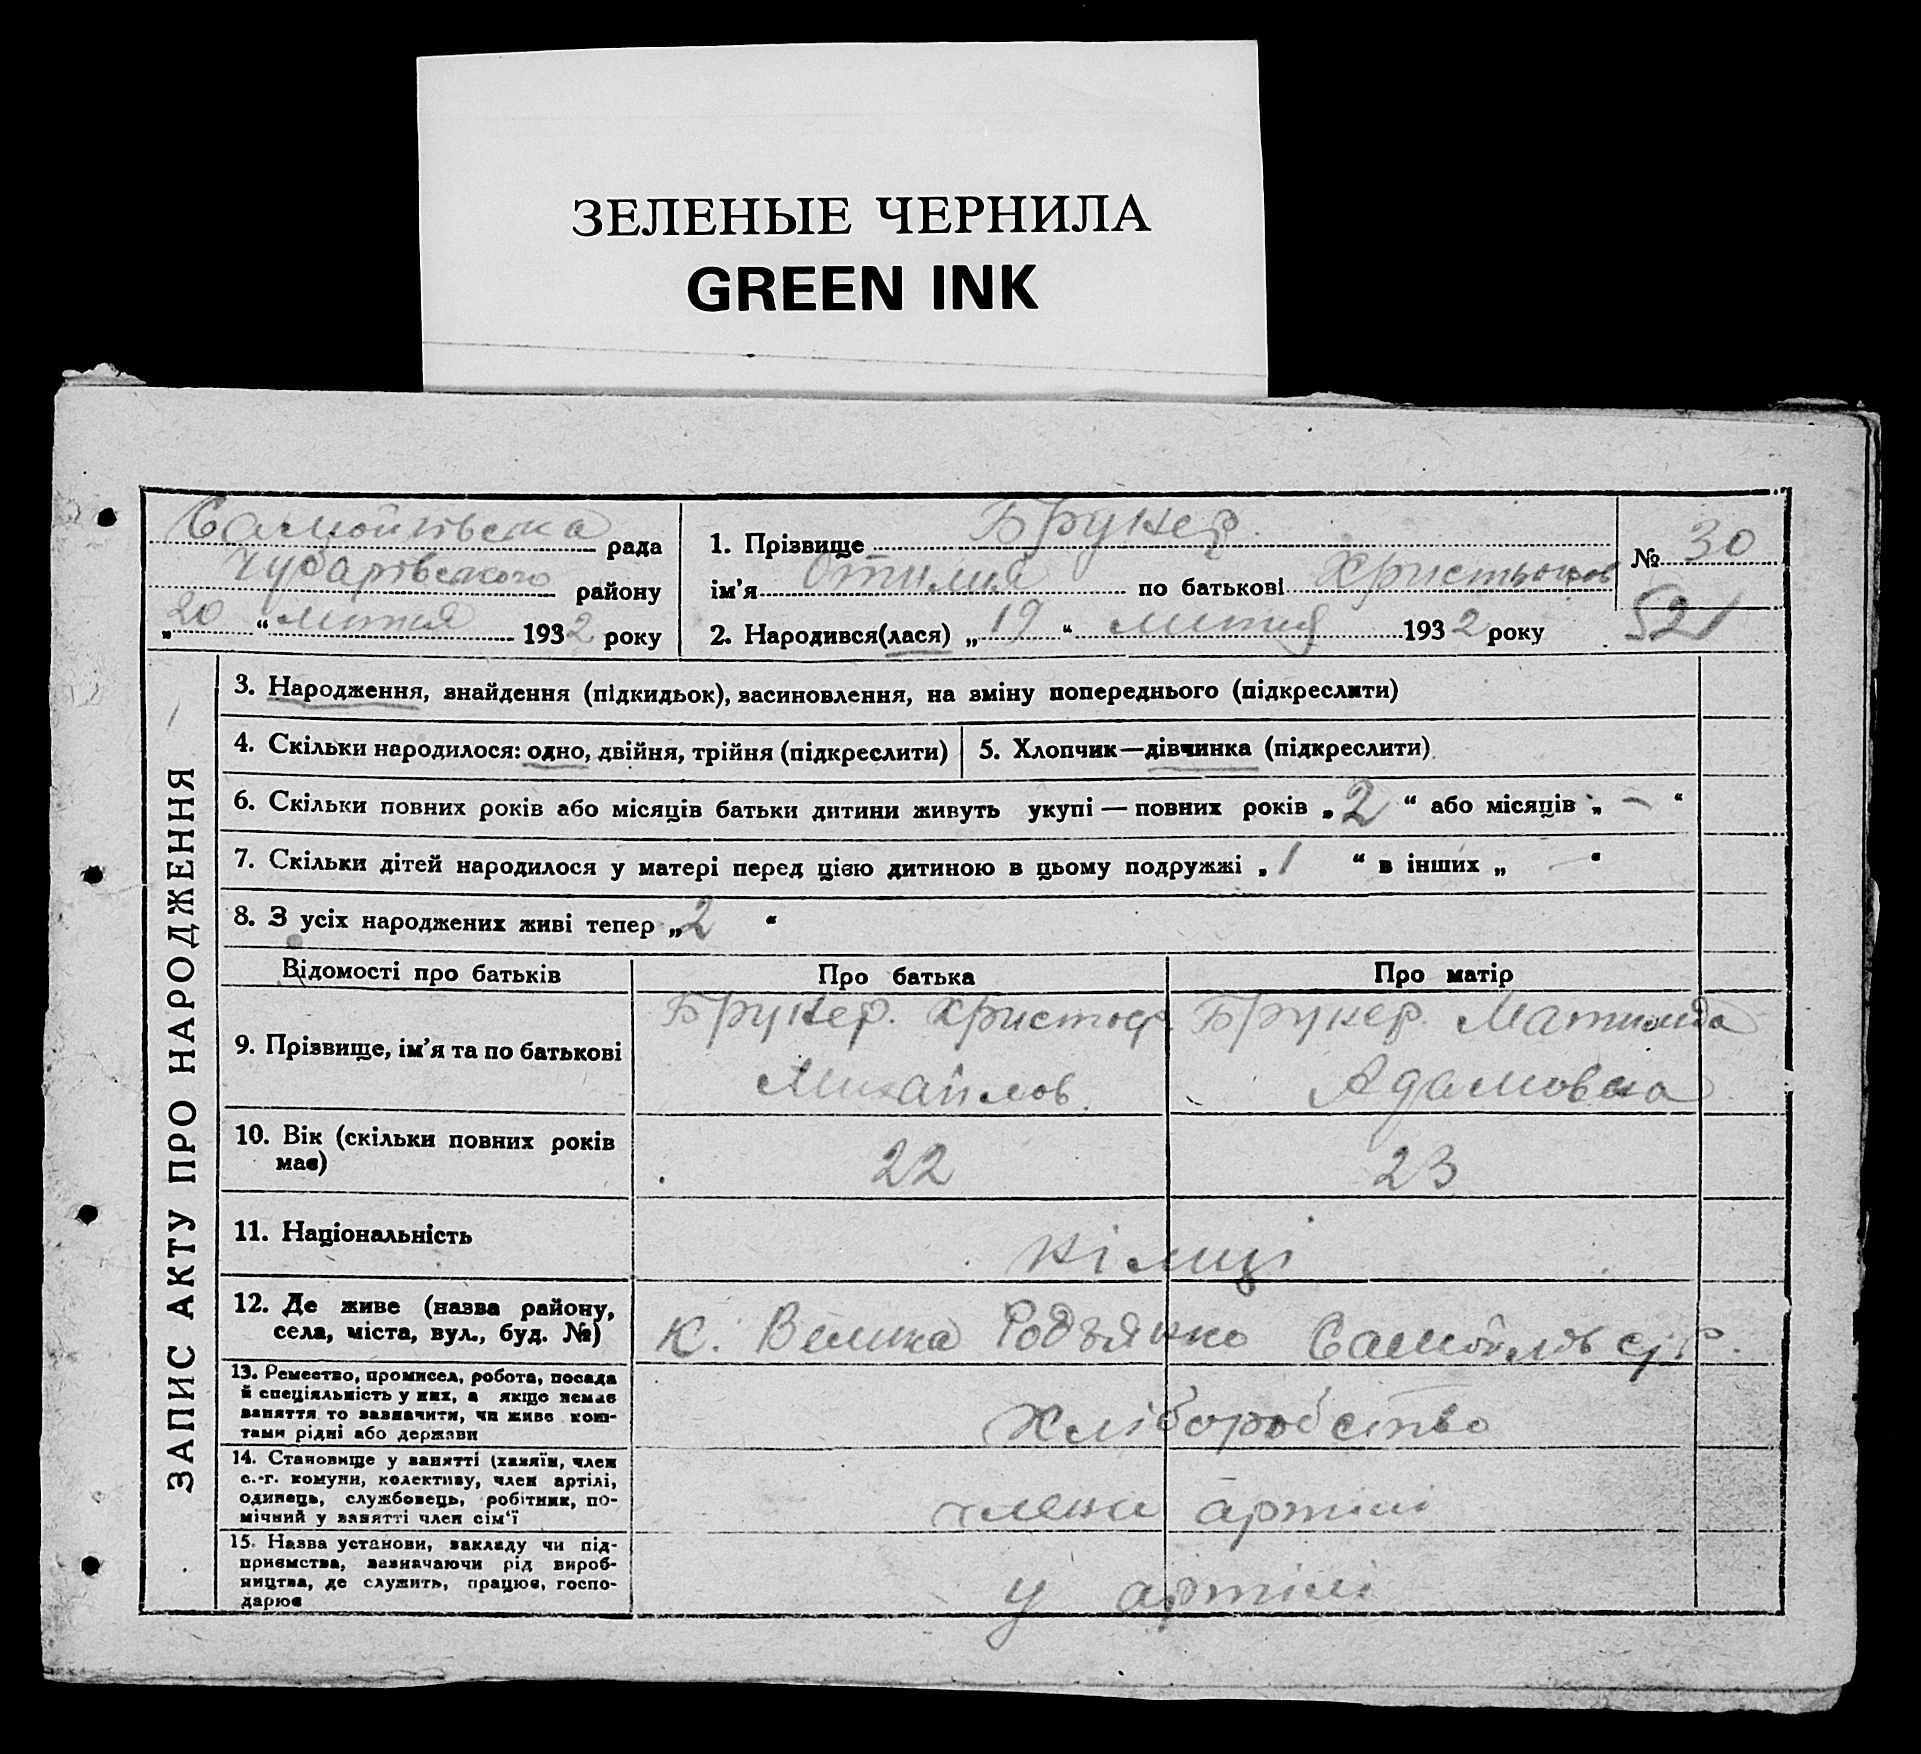 ЗЕЛЕНЫЕ ЧЕРНИЛА
GREEN INK
Самойлівська рада
Чубарівського району
„20“ лютня 1932 року
1. Прізвище Брукер
ім'я Отилия по батькові
2. Народився(лася) „19“ лютня 1932 року
№ 30
521
ЗАПИС АКТУ ПРО НАРОДЖЕННЯ
3. Народження, знайдення (підкидьок), засиновлення, на зміну попереднього (підкреслити)
4. Скільки народилося: одно, двійня, трійня (підкреслити)
5. Хлопчик—дівчинка (підкреслити)
6. Скільки повних років або місяців батьки дитини живуть укупі — повних років „2“ або місяців „—“
7. Скільки дітей народилося у матері перед цією дитиною в цьому подружжі „1“ в інших „—“
8. З усіх народжених живі тепер „2“
Відомості про батьків
Про батька
Про матір
9. Прізвище, ім'я та по батькові
Брукер Христоф
Михайлов
Брукер Матильда
Адамовна
10. Вік (скільки повних років
має)
22
23
11. Національність
німці
12. Де живе (назва району,
села, міста, вул., буд. №)
К. Велика Родзянко Самойлів с/р.
13. Ремество, промисел, робота, посада
й спеціяльність у них, а якщо немає
заняття то зазначити, чи живе кош-
тами рідні або держави
Хліборобство
14. Становище у занятті (хазяїн, член
с.-г. комуни, колективу, член артілі,
одинець, службовець, робітник, по-
мічний у занятті член сім'ї
члени артілі
15. Назва установи, закладу чи під-
приємства, зазначаючи рід вироб-
ництва, де служить, працює, госпо-
дарює
у артілі